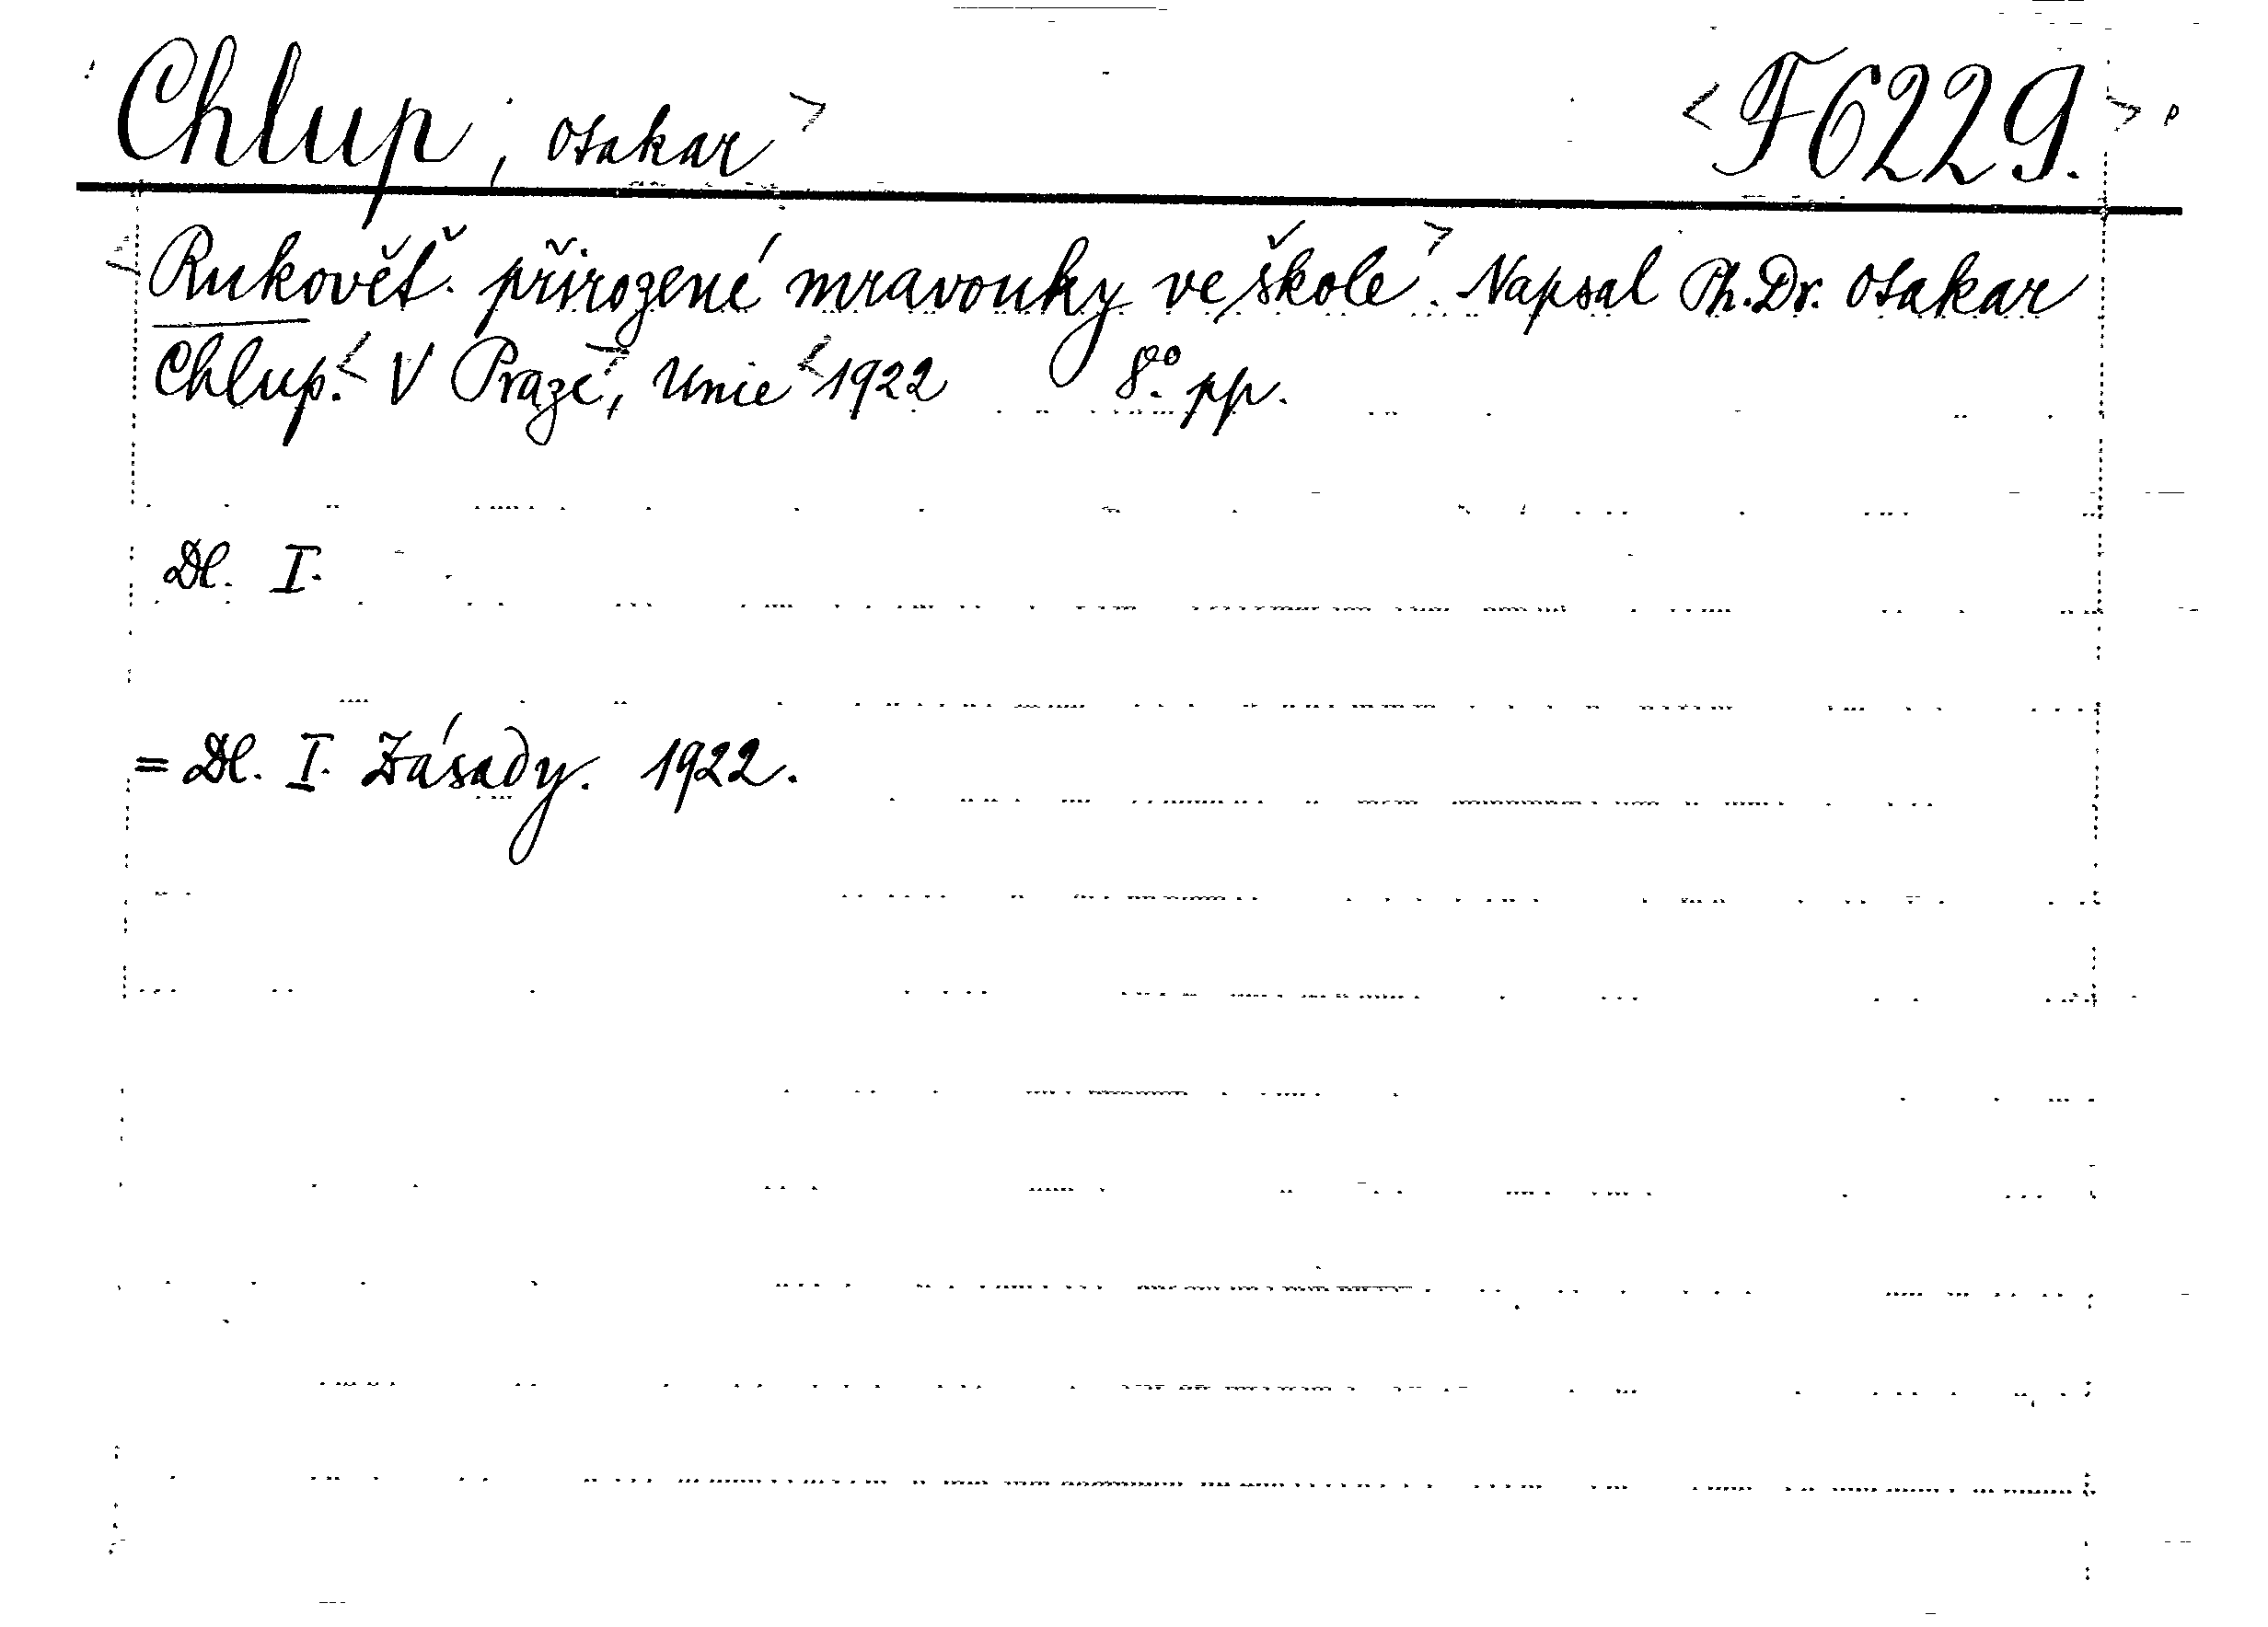 Chlup, Otakar> <F6229.>
<Rukověť přirozené mravouky ve škole>. Napsal Ph.Dr. Otakar
Chlup.< V Praze>, Unie <1922 8º. pp.
Dl. I.
= Dl. I. Zásady. 1922.